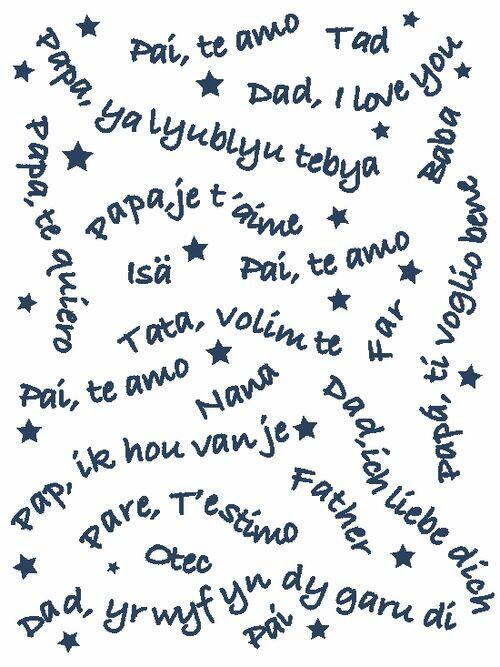 Pai, te amo
Tad
Papa, ya lyublyu tebya
Dad, I love you
Baba
Papa, te quiero
Papa, je t'aime
Isä
Pai, te amo
Papá, ti voglio bene
Tata, volim te
Far
Pai, te amo
Nana
Dad, ich liebe dich
Pap, ik hou van je
Father
Pare, T'estimo
Otec
Dad, yr wyf yn dy garu di
Pai